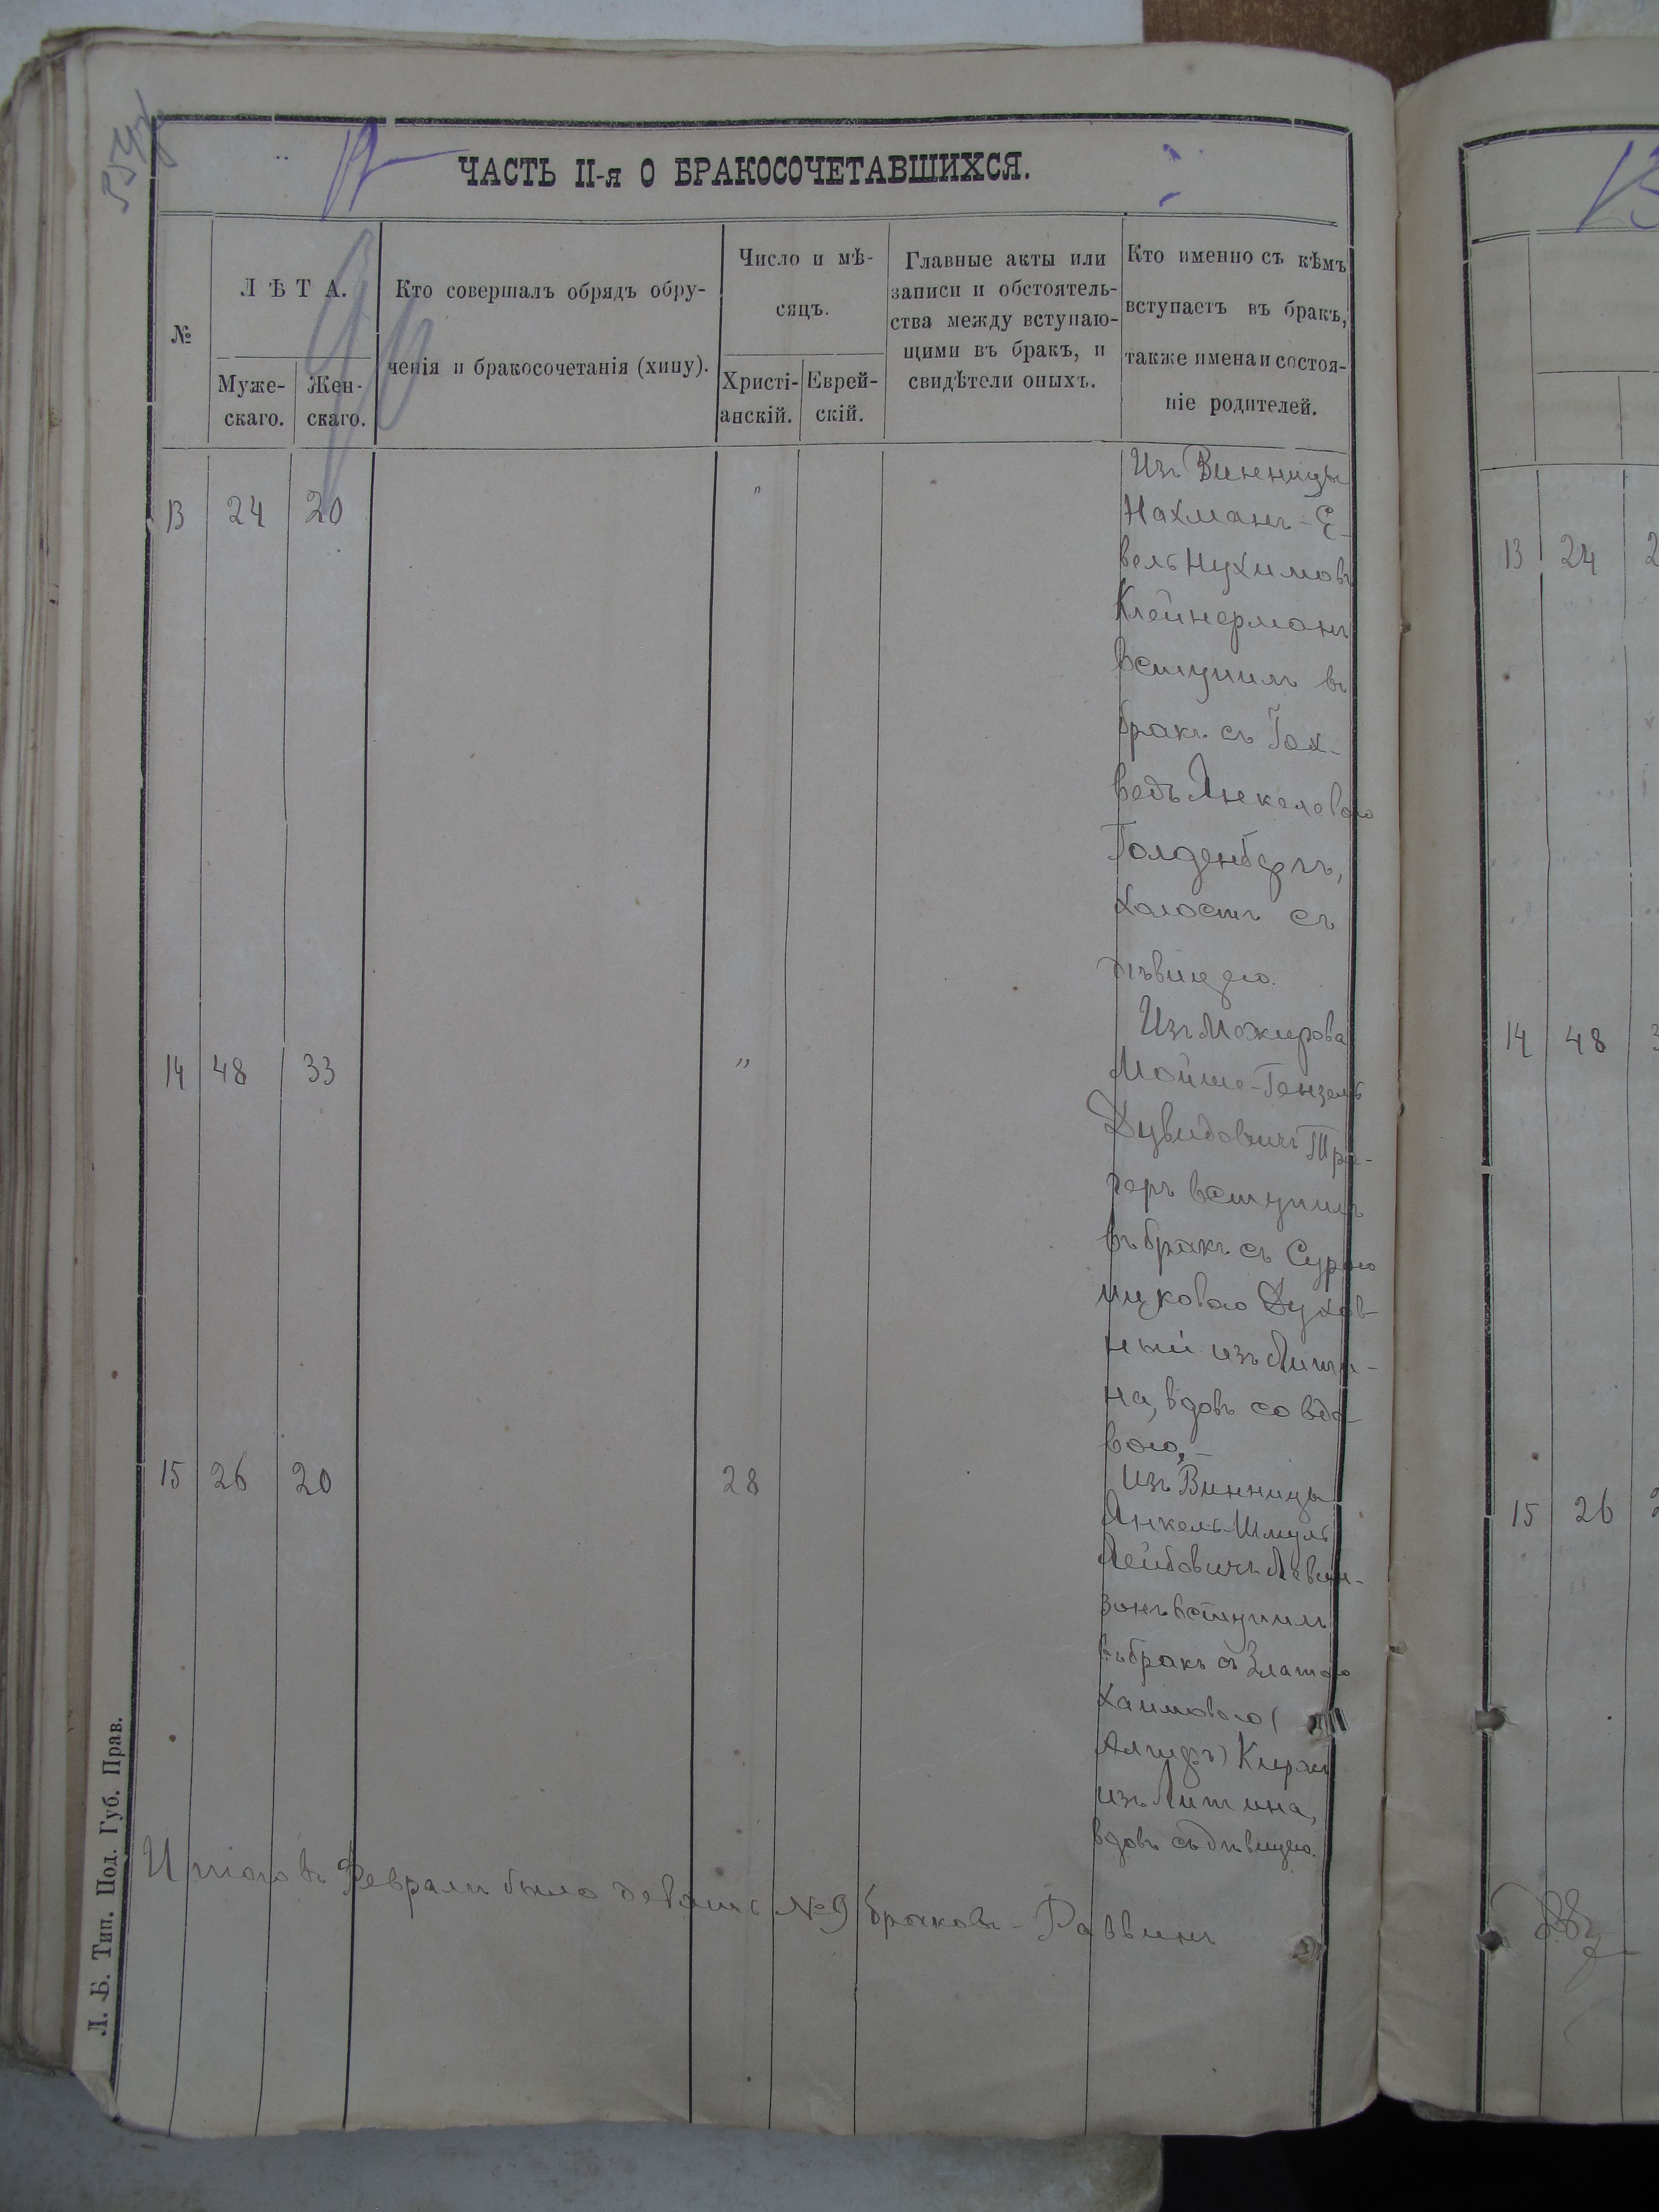 ЧАСТЬ II-я О БРАКОСОЧЕТАВШИХСЯ.
№
ЛѢТА.
Муже-
скаго.
Жен-
скаго.
Кто совершалъ обрядъ обру-
ченія и бракосочетанія (хипу).
Число и мѣ-
сяцъ.
Христі-
анскій.
Еврей-
скій.
Главные акты или
записи и обстоятель-
ства между вступаю-
щими въ бракъ, и
свидѣтели оныхъ.
Кто именно съ кѣмъ
вступаетъ въ бракъ,
также имена и состоя-
ніе родителей.
13 24 20 "
Изъ Винницы
Нахманъ-Е-
вель Нухимовъ
Клейнерманъ
вступилъ въ
бракъ съ Іох-
ведъ Янкелевою
Голденбергъ,
холостъ съ
дѣвицею.
14 48 33 "
Изъ Межирова
Мойше-Гензель
Дувидовичъ
вступилъ
въ бракъ съ Сурою
Ицковою Духов-
ный изъ Лити-
на, вдовъ со вдо-
вою,-
15 26 20 28
Изъ Винницы
Янкель-Шмуль
Лейбовичъ Левин-
зонъ вступилъ
въ бракъ съ Златою
Хаимовою (
изъ Литина,
вдовъ съ дѣвицею.
Итого въ Февралѣ было девять №9 браковъ - Раввинъ
Л. Б. Тип. Под. Губ. Прав.
13 24
14 48
15 26